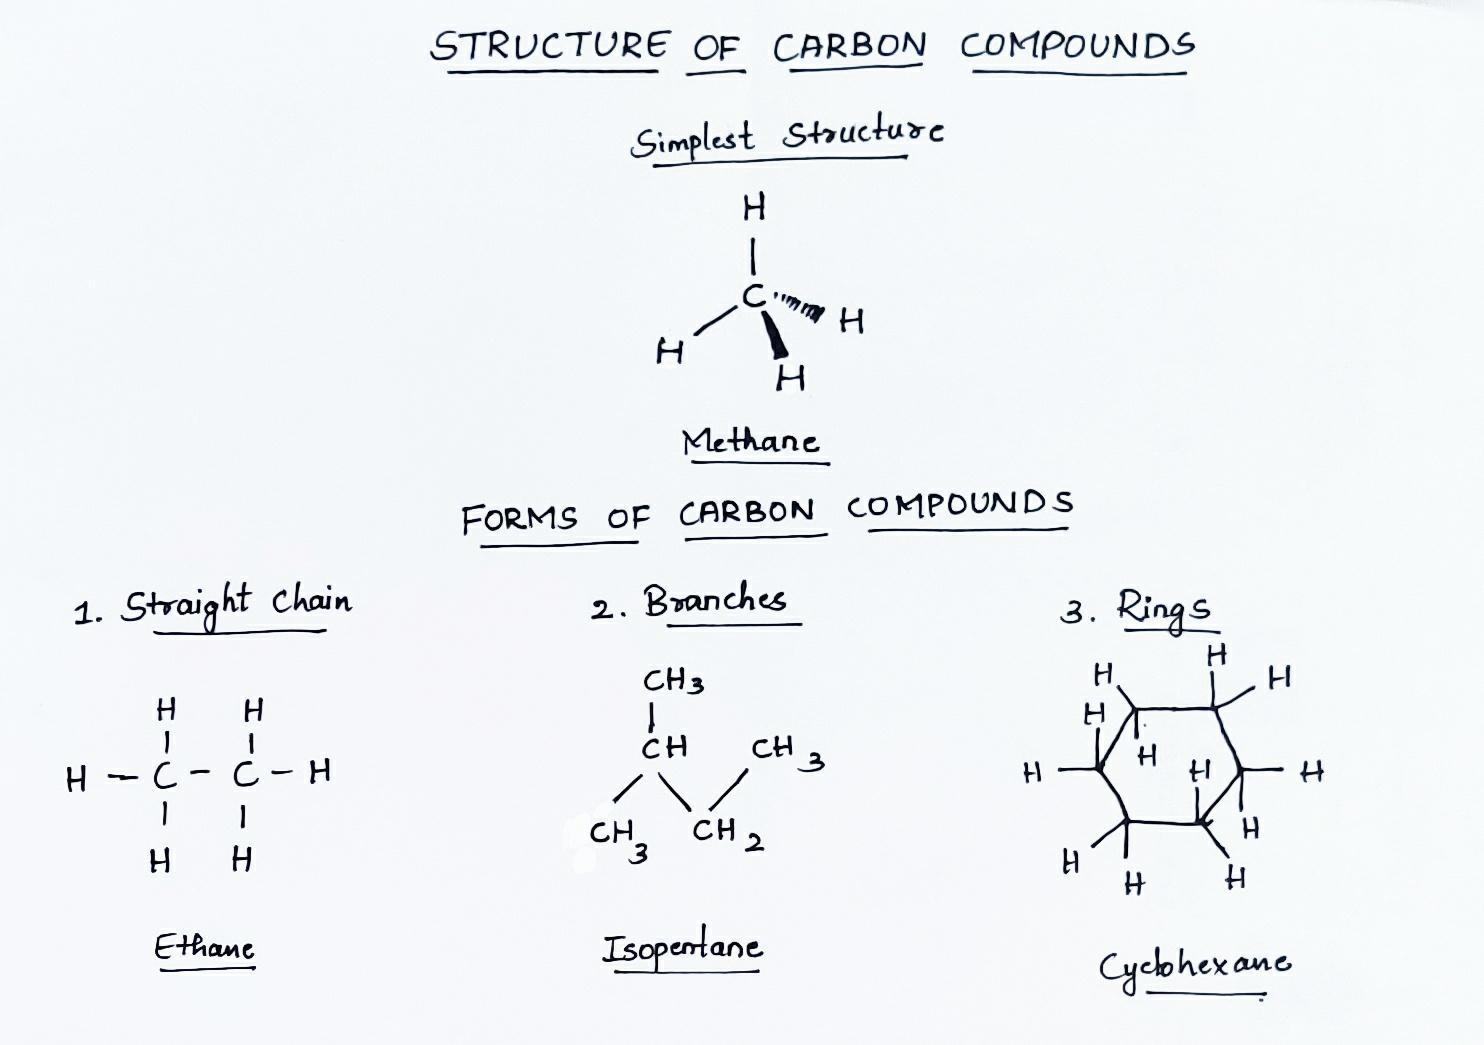 STRUCTURE OF CARBON COMPOUNDS
Simplest Structure
H
C H
H
H
Methane
FORMS OF CARBON COMPOUNDS
1. Straight Chain
H H
H - C - C - H
H H
Ethane
2. Branches
CH3
CH CH3
CH3 CH2
Isopentane
3. Rings
H
H H
H
H
H H H
H
H
H H
Cyclohexane